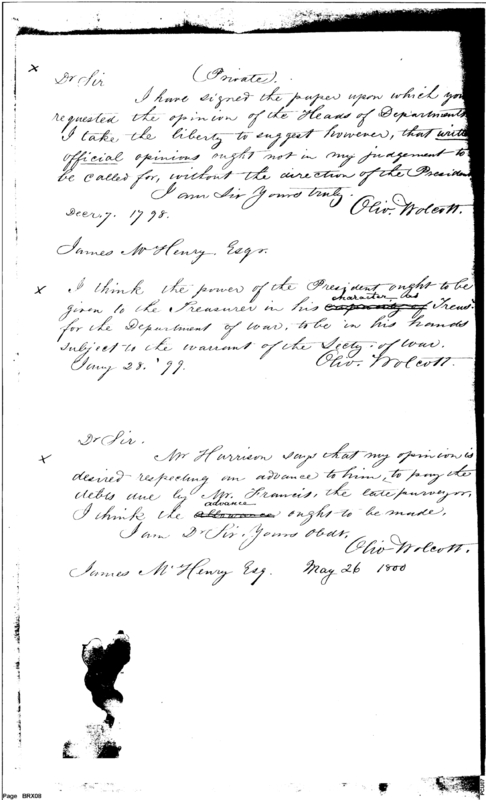 x
(Private).
Dr Sir
I have signed the paper upon which you
requested the opinion of the Heads of Departments
I take the liberty to suggest however, that write
official opinions ought not in my judgement to
be called for, without the direction of the President
I am Sir Yours truly.
Decr 7. 1798.
Oliv. Wolcott.
James McHenry Esqr.
x
I think the power of the President ought to be
character as
given to the Treasurer in his capacity of Treasr.
for the Department of war, to be in his hands
subject to the warrant of the Secty. of war.
Jany 28. '99.
Oliv. Wolcott.
Dr Sir.
x
Mr Harrison says that my opinion is
desired respecting an advance to him, to pay the
debts due by Mr. Francis, the late purveyor,
advance
I think the allowance ought to be made.
I am Dr Sir. Yours obdt.
Oliv Wolcott.
James McHenry Esq. May 26 1800
Page BRX08
PCD07